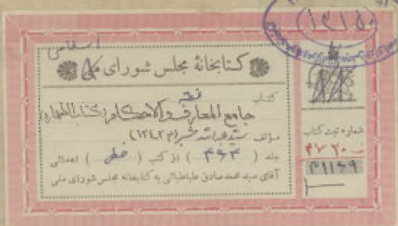 اسلامی
کتابخانهٔ مجلس شورای ملی
کتاب جامع المعارف والاحکام (کتاب الطهارة)
مؤلف سید عبدالله شبر (م ۱۲۴۲)
جلد (۴۶۴) از کتب (خطی) اهدائی
آقای سید محمد صادق طباطبائی به کتابخانه مجلس شورای ملی
۱۳۱۵
شماره ثبت کتاب
۴۷۲۰
۴۱۱۶۹